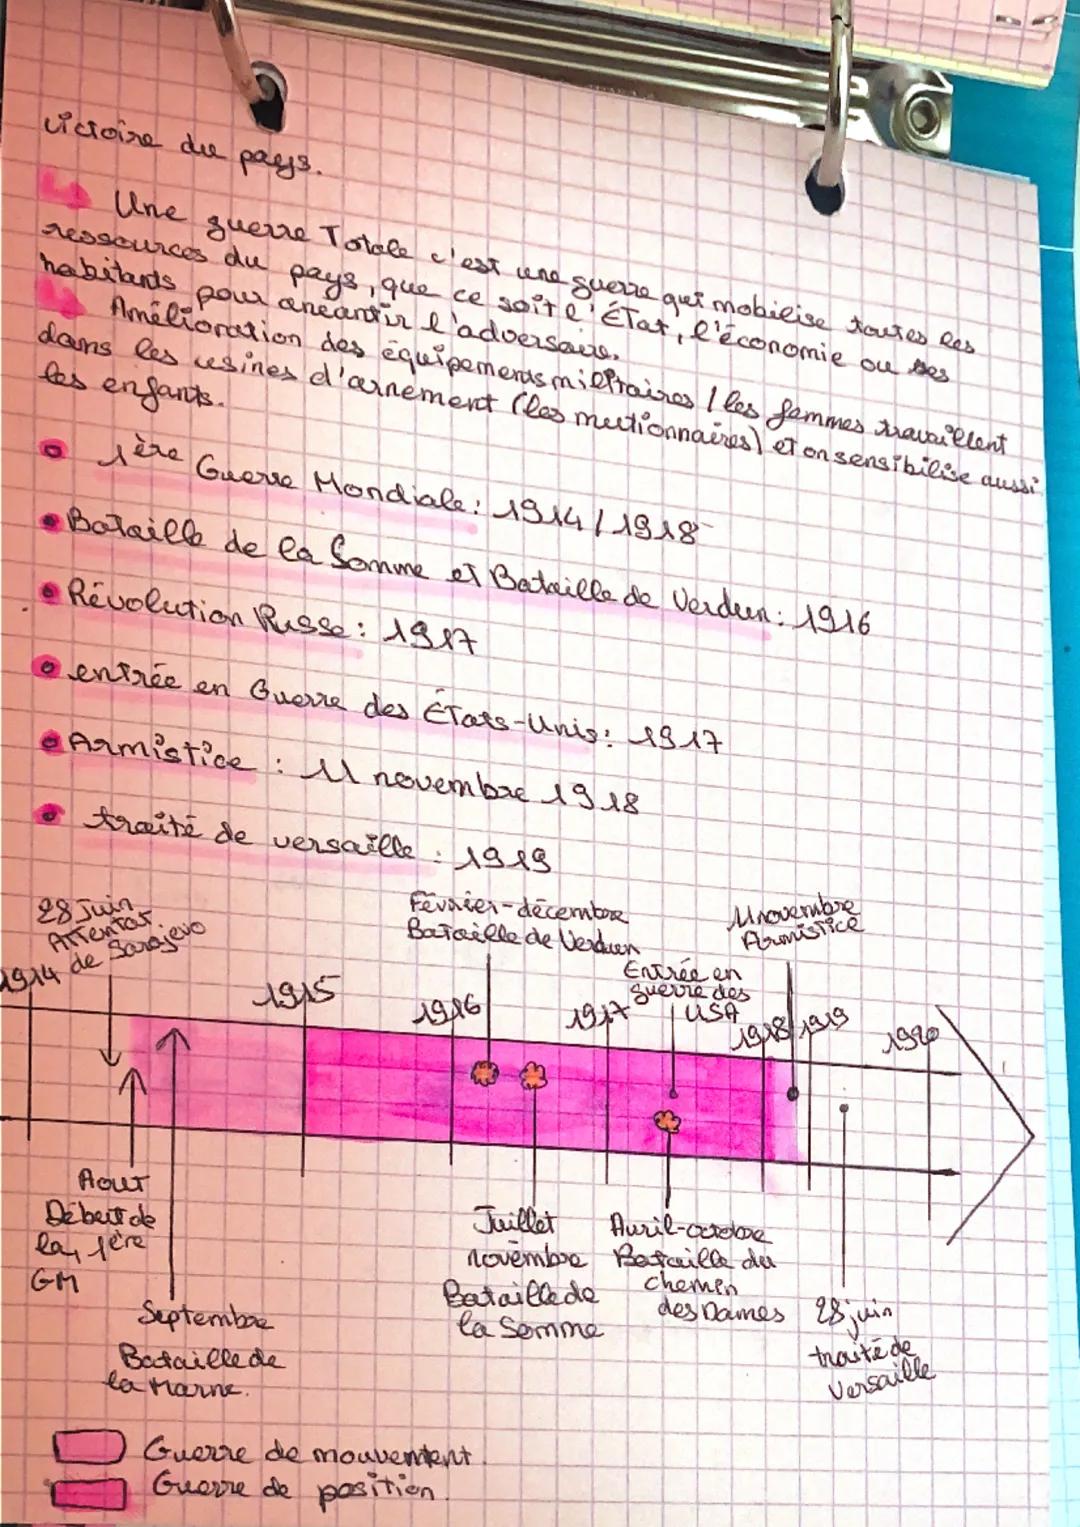 victoire du pays.
↳ Une guerre Totale c'est une guerre qui mobilise toutes les
ressources du pays, que ce soit l'État, l'économie ou ses
habitants pour anéantir l'adversaire.
↳ Amélioration des équipements militaires / les femmes travaillent
dans les usines d'arnement (les mutionnaires) et on sensibilise aussi
les enfants.
1ère Guerre Mondiale : 1914 / 1918
Bataille de la Somme et Bataille de Verdun : 1916
Révolution Russe : 1917
entrée en Guerre des États-Unis : 1917
Armistice : 11 novembre 1918
traité de versaille : 1919
28 Juin
Attentat
de Sarajevo
Février-décembre
Bataille de Verdun
Entrée en
guerre des
USA
11 novembre
Armistice
1914
1915
1916
1917
1918
1919
1920
Aout
Début de
la 1ère
GM
Septembre
Bataille de
la Marne.
Juillet
novembre
Bataille de
la Somme
Avril-octobre
Bataille du
chemin
des Dames
28 juin
traité de
versaille
Guerre de mouvement.
Guerre de position.